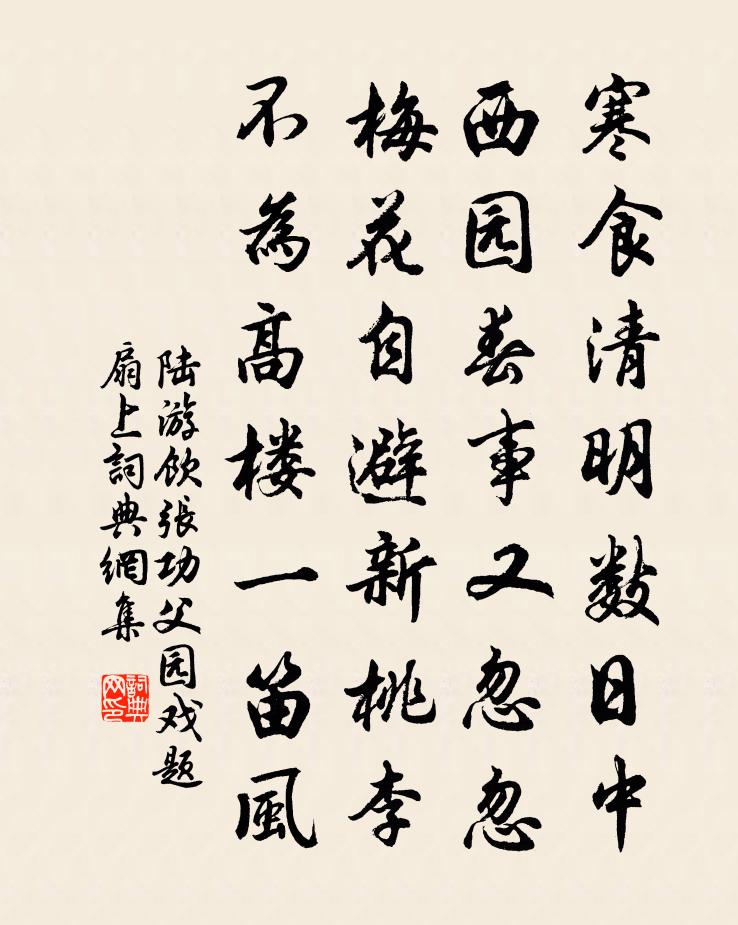 寒食清明数日中
西园春事又忽忽
梅花自避新桃李
不為高楼一笛風
陆游饮張功父园戏题
扇上詞典網集
詞典网印